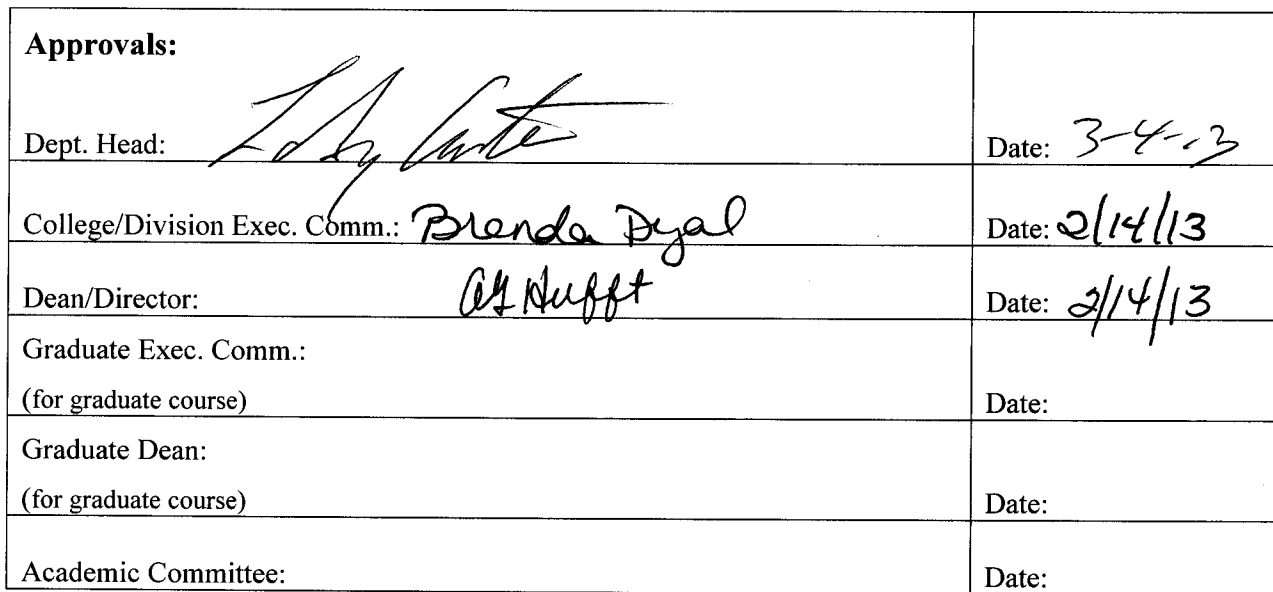 Approvals:
Dept. Head: Date: 3-4-13
College/Division Exec. Comm.: Brenda Dyal Date: 2/14/13
Dean/Director: Hufft Date: 2/14/13
Graduate Exec. Comm.:
(for graduate course) Date:
Graduate Dean:
(for graduate course) Date:
Academic Committee: Date: